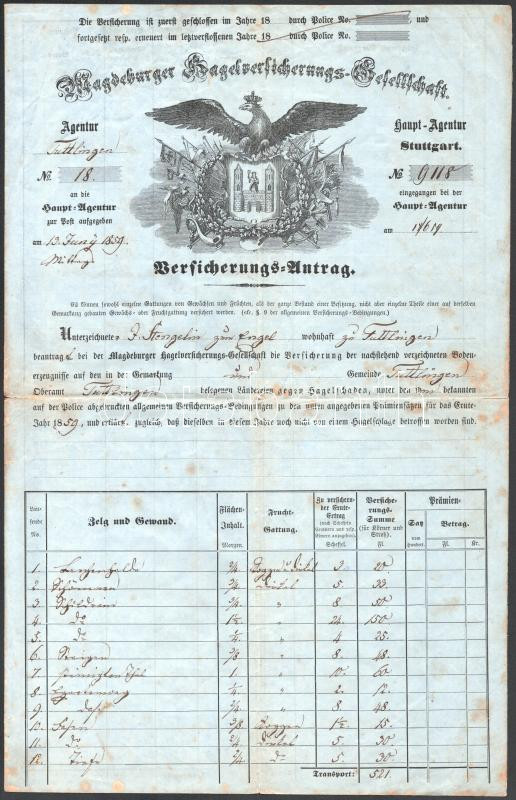 Die Versicherung ist zuerst geschlossen im Jahre 18 durch Police No. und
fortgesetzt resp. erneuert im letztverflossenen Jahre 18 durch Police No.
Magdeburger Hagelversicherungs-Gesellschaft.
Agentur
Tuttlingen
No. 18.
an die
Haupt-Agentur
zur Post aufgegeben
am 13. Juny 1859.
Mittag
Haupt-Agentur
Stuttgart.
No. 9118
eingegangen bei der
Haupt-Agentur
am 14/6 19
Versicherungs-Antrag.
Es können sowohl einzelne Gattungen von Gewächsen und Früchten, als der ganze Bestand einer Besitzung, nicht aber einzelne Theile einer auf derselben
Gemarkung gebauten Gewächs- oder Fruchtgattung versichert werden. (cfr. § 9 der allgemeinen Versicherungs-Bedingungen.)
Unterzeichneter J. Stengelin zum Engel wohnhaft zu Tuttlingen
beantragt bei der Magdeburger Hagelversicherungs-Gesellschaft die Versicherung der nachstehend verzeichneten Boden-
erzeugnisse auf den in de: Gemarkung und Gemeinde Tuttlingen
Oberamt Tuttlingen belegenen Ländereien gegen Hagelschaden, unter den ihm bekannten
auf der Police abgedruckten allgemeinen Versicherungs-Bedingungen zu den unten angegebenen Prämiensätzen für das Ernte-
Jahr 1859, und erklärt zugleich, daß dieselben in diesem Jahre noch nicht von einem Hagelschlage betroffen worden sind.
Laufende No. Zelg und Gewand. Flächen-Inhalt. Morgen. Frucht-Gattung. Zu versichernder Ernte-Ertrag Scheffel. Versicherungs-Summe (für Körner und Stroh). Fl. Prämien- Satz vom Hundert. Betrag. Fl. Kr.
1. 3/4 Roggen u Dinkel 3 20
2. 3/4 Dinkel 5 33
3. 5/4 " 8 50
4. do 1 1/2 " 24 150
5. do 1/4 " 4 25.
6. Steigen " 8. 48.
7. 1. " 10. 60
8 1/4 " 2. 12.
9 " 8 48.
10. 3/8 Roggen 1 1/2 15.
11. do 3/4 Dinkel 5 30.
12. Tiefe 3/4 do 5. 30.
Transport: 521.